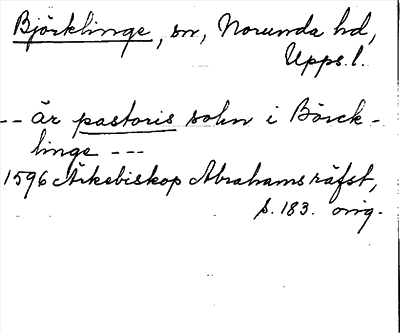 Björklinge, sn, Norunda hd,
Upps.l.
-- är pastoris sohn i Börck-
linge ---
1596 Ärkebiskop Abrahams räfst,
s. 183. orig.